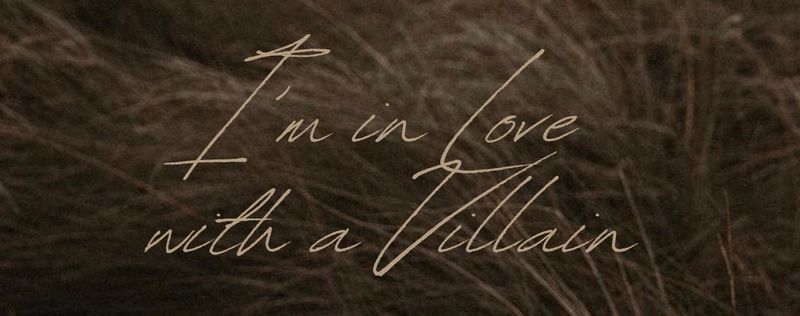 I'm in love
with a Villain